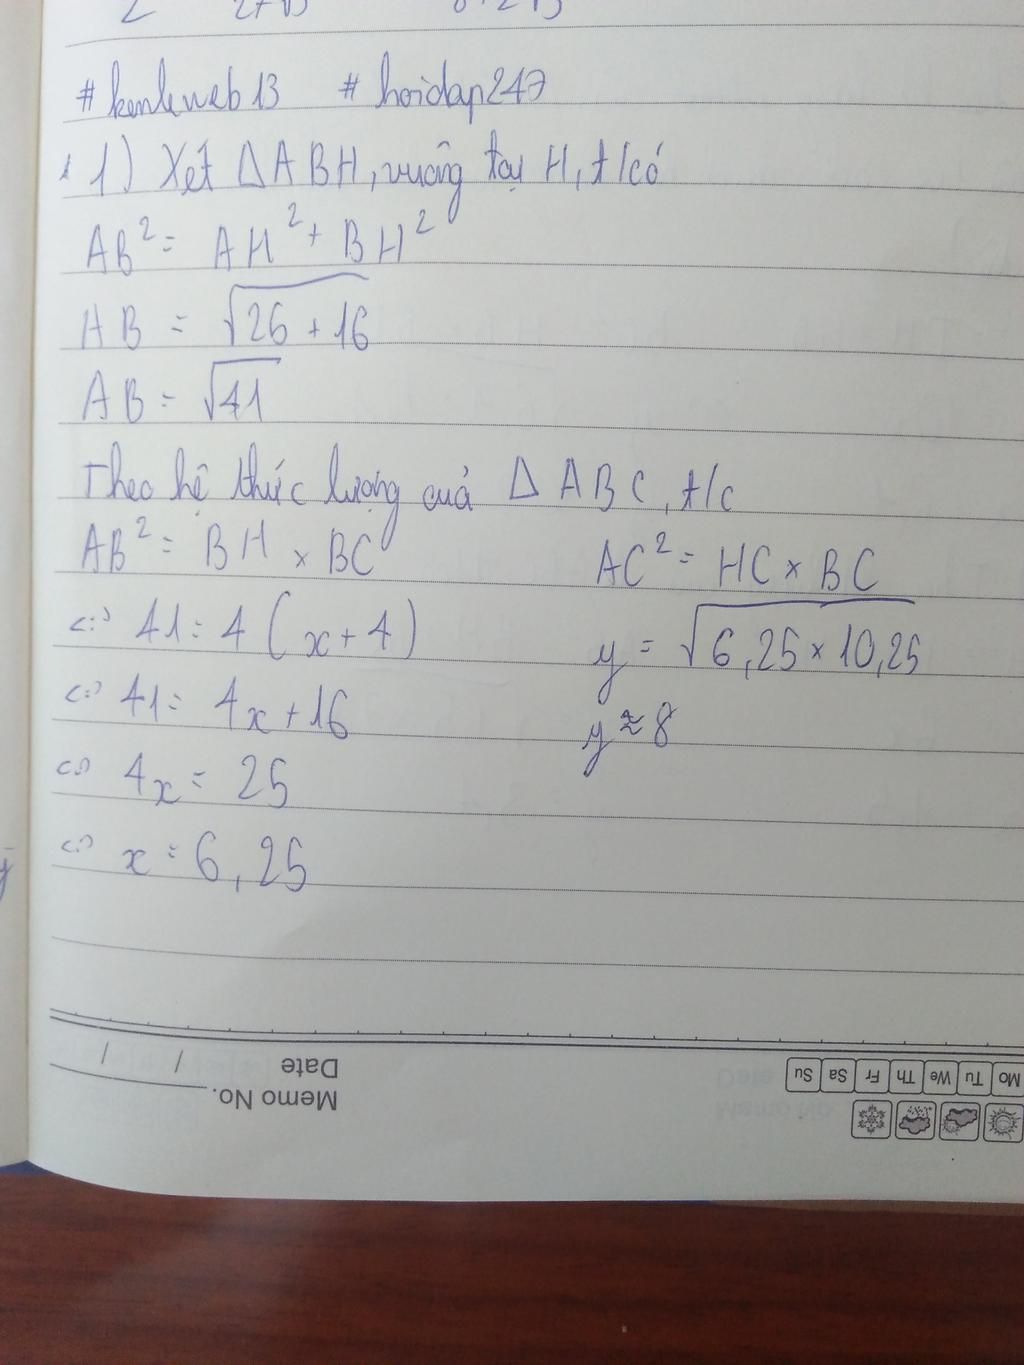 # kenhweb13 # hoidap247
1) Xét ΔABH, vuông tại H, t/có
AB² = AH² + BH²
AB = √25 + 16
AB = √41
Theo hệ thức lượng cuả ΔABC, t/c
AB² = BH × BC
<=> 41 = 4 (x + 4)
<=> 41 = 4x + 16
<=> 4x = 25
<=> x = 6,25
AC² = HC × BC
y = √6,25 × 10,25
y ≈ 8
Memo No.
Date / /
Mo Tu We Th Fr Sa Su